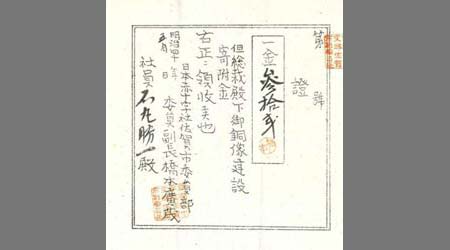 第 號
證
一金参拾弐
但総裁殿下御銅像建設
寄附金
右正ニ領收夫也
明治四年 月 日
日本赤十字社佐賀市委員部
委員副長橋本廣成
社員 石丸勝一殿